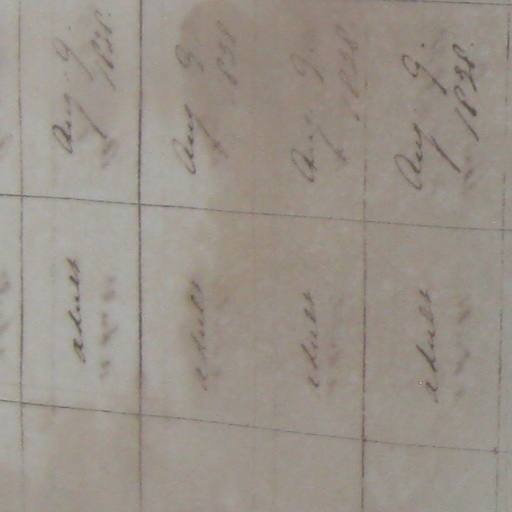 adult Aug. 9.
1828.
adult Aug 9
1828
adult Aug. 9.
1828
adult Aug. 9.
1828.